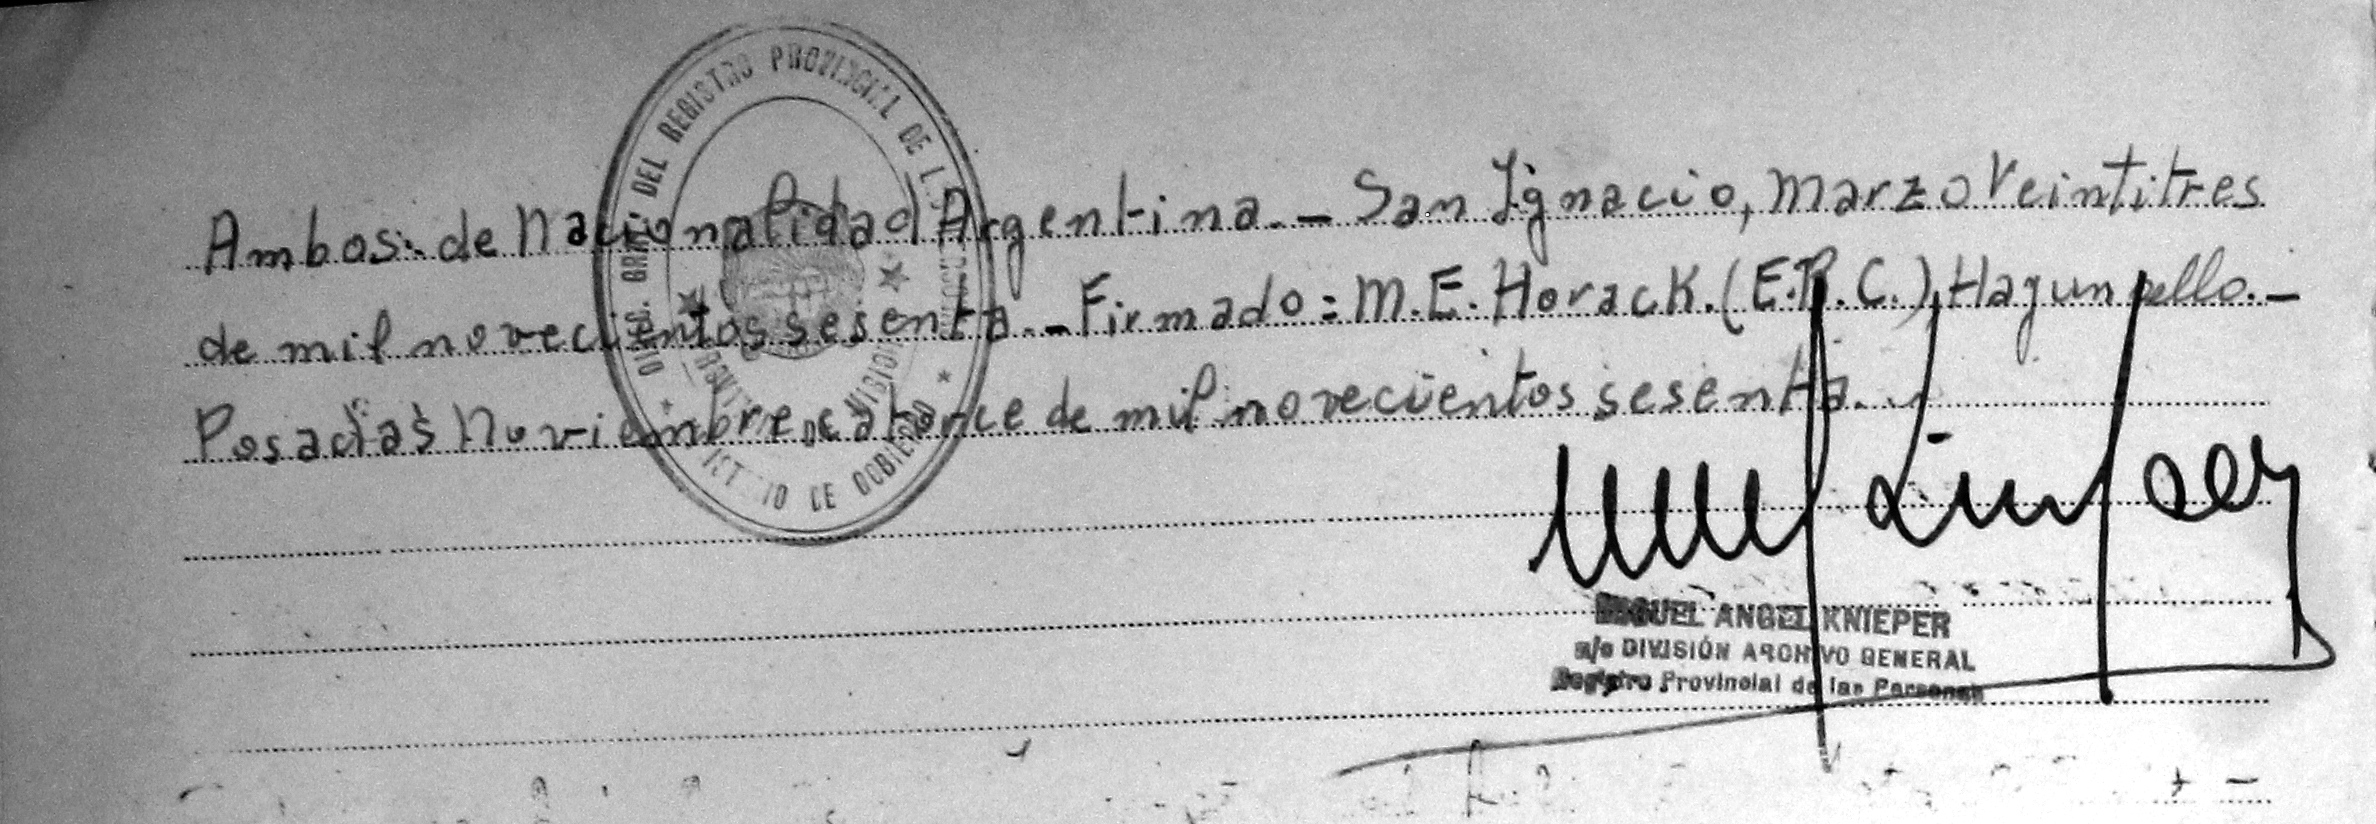 Ambos: de Nacionalidad Argentina._ San Ignacio, Marzo Veintitres
de mil novecientos sesenta._ Firmado: M.E. Horack. (E.R.C.), Hay un sello._
Posadas Noviembre catorce de mil novecientos sesenta.
DIREC. GRAL. DEL REGISTRO PROVINCIAL DE
DE GOBIERNO
MIGUEL ANGEL KNIEPER
a/c DIVISIÓN ARCHIVO GENERAL
Registro Provincial de las Personas